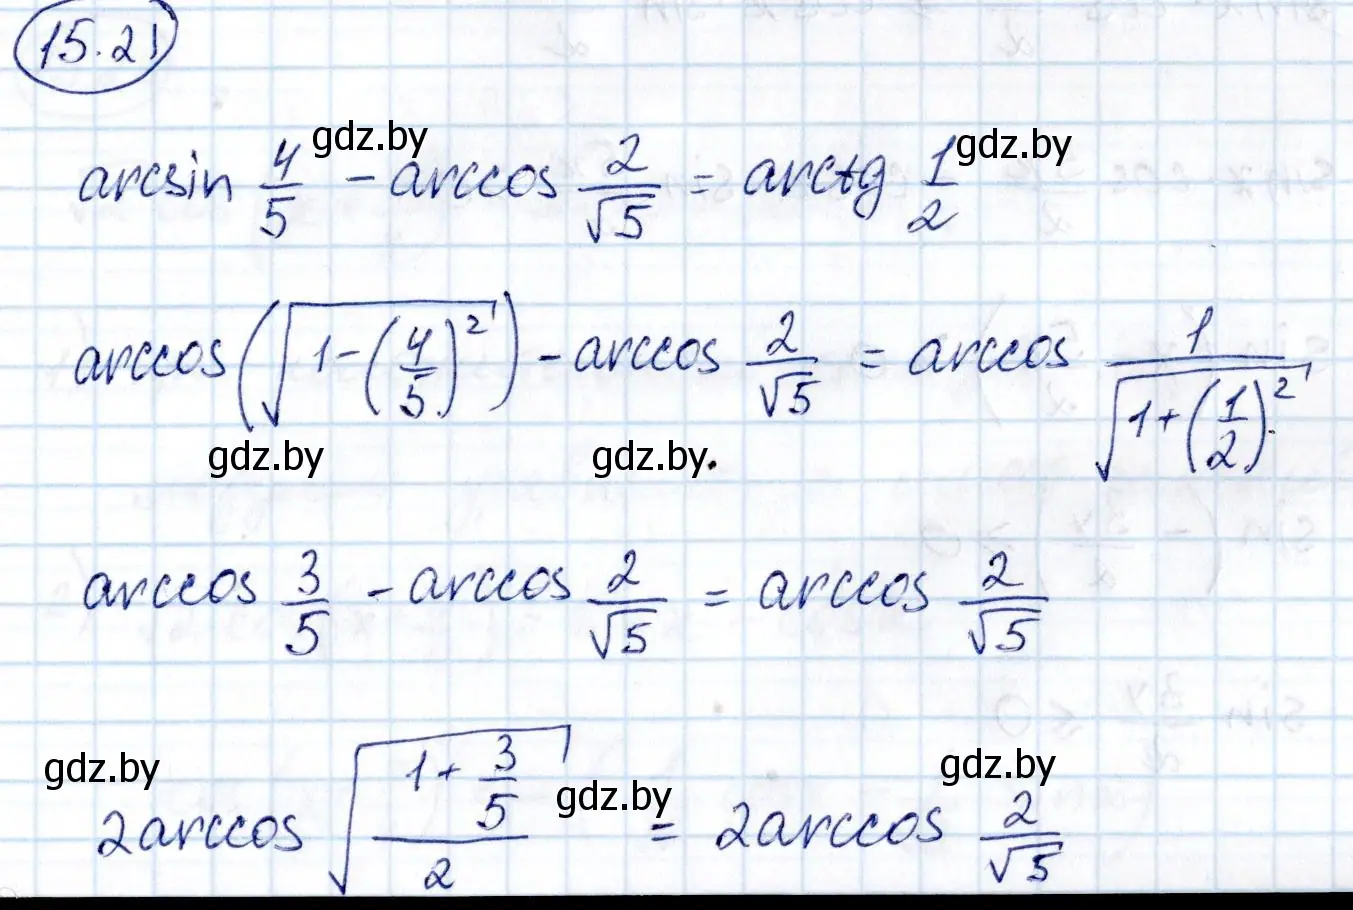 15.21
gdz.by gdz.by
arcsin 4/5 - arccos 2/√5 = arctg 1/2
arccos(√(1-(4/5)²)) - arccos 2/√5 = arccos 1/√(1+(1/2)²)
gdz.by gdz.by
arccos 3/5 - arccos 2/√5 = arccos 2/√5
gdz.by gdz.by gdz.by
2arccos √((1+3/5)/2) = 2arccos 2/√5